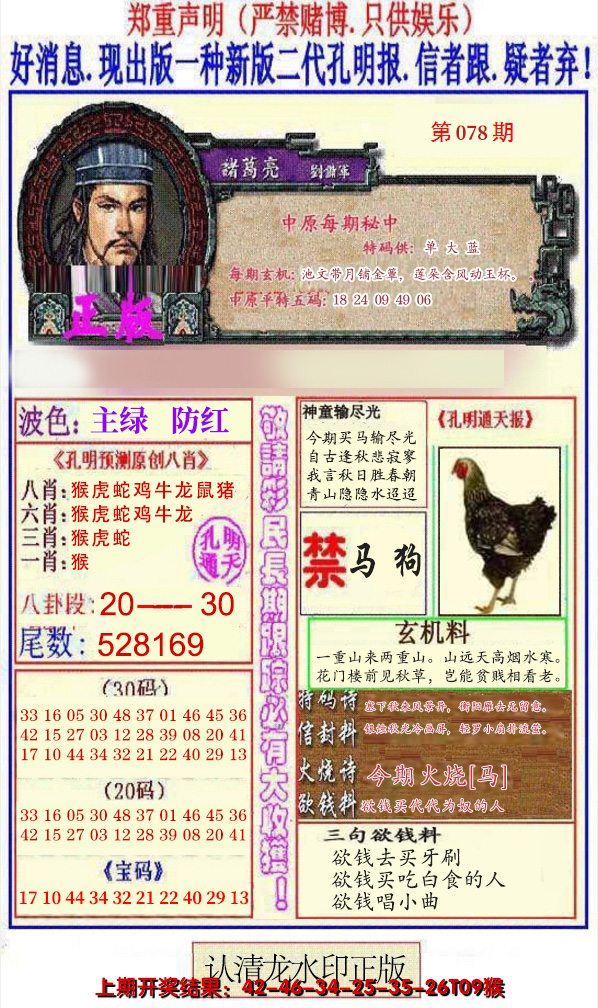 郑重声明（严禁赌博.只供娱乐）
好消息.现出版一种新版二代孔明报.信者跟.疑者弃！
第 078 期
諸葛亮 劉備軍
中原每期秘中
特码供：单 大 蓝
每期玄机：池文带月铺金簟，莲朵含风动玉杯。
中原平特五码：18 24 09 49 06
正版
波色：主绿 防红
《孔明预测原创八肖》
八肖：猴虎蛇鸡牛龙鼠猪
六肖：猴虎蛇鸡牛龙
三肖：猴虎蛇
一肖：猴
孔明
通天
八卦段：20——30
尾数：528169
（30码）
33 16 05 30 48 37 01 46 45 36
42 15 27 03 12 28 39 08 20 41
17 10 44 34 32 21 22 40 29 13
（20码）
33 16 05 30 48 37 01 46 45 36
42 15 27 03 12 28 39 08 20 41
《宝码》
17 10 44 34 32 21 22 40 29 13
敬請彩民長期跟踪必有大收獲！
神童输尽光
今期买马输尽光
自古逢秋悲寂寥
我言秋日胜春朝
青山隐隐水迢迢
《孔明通天报》
禁 马 狗
玄机料
一重山来两重山。山远天高烟水寒。
花门楼前见秋草，岂能贫贱相看老。
特码诗 塞下秋来风景异，衡阳雁去无留意。
信封料 银烛秋光冷画屏，轻罗小扇扑流萤。
火烧诗 今期火烧[马]
欲钱料 欲钱买代代为奴的人
三句欲钱料
欲钱去买牙刷
欲钱买吃白食的人
欲钱唱小曲
认清龙水印正版
上期开奖结果：42-46-34-25-35-26T09猴